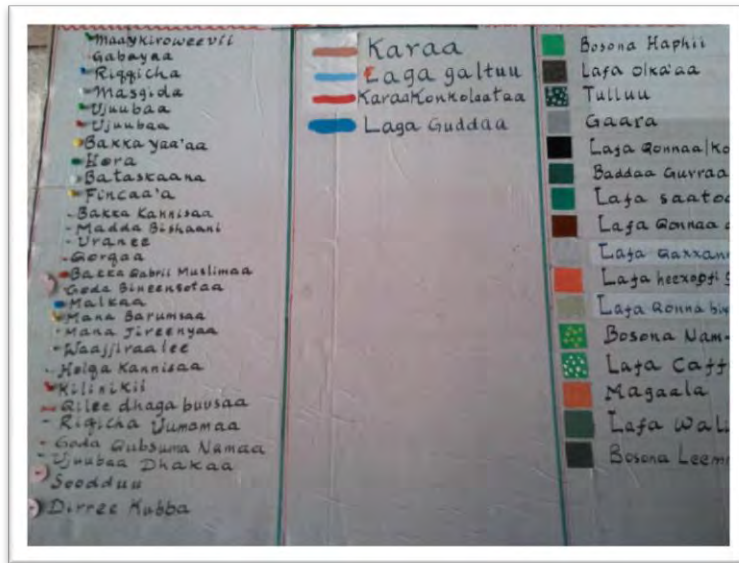 Maaykiroweevii
Gabayaa
Riqqicha
Masgida
Ujuubaa
Ujuubaa
Bakka yaa'aa
Hora
Bataskaana
Fincaa'a
Bakka Kannisaa
Madda Bishaani
Uranee
Qorqaa
Bakka Qabrii Muslimaa
Goda Bineensotaa
Malkaa
Mana Barumsaa
Mana Jireenyaa
Waajjiraalee
Holqa Kannisaa
Kilinikii
Qilee dhaga buusaa
Riqicha Uumamaa
Goda Qubsuma Namaa
Ujuubaa Dhakaa
Soodduu
Dirree Kubba
Karaa
Laga galtuu
Karaa Konkolaataa
Laga Guddaa
Bosona Haphii
Lafa olka'aa
Tulluu
Gaara
Lafa Qonnaa/Ko
Baddaa Guvraa
Lafa saatoo
Lafa Qonnaa
Lafa Qaxxan
Lafa heexoffi
Lafa Qonna bi
Bosona Nam
Lafa Caff
Magaala
Lafa Wali
Bosona Leem